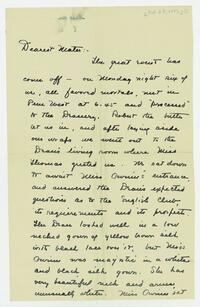 Dearest Mater:-
The great event has
come off - on Monday night six of
us, all favored mortals, met in
Pem West at 6.45 and "processed"
to the Deanery. Robert the butler
let us in, and after laying aside
our wraps we went out to the
Dean's living room where Miss
Thomas greeted us. We sat down
to await Miss Irwin's entrance,
and answered the Dean's expected
questions as to the "English Club,"
its requirements and its prospects.
The Dean looked well in a low
necked gown of yellow brown silk
with black lace over it, but Miss
Irwin was majestic in a white
and black silk gown. She has
very beautiful neck and arms
unusually white. Miss Irwin sat